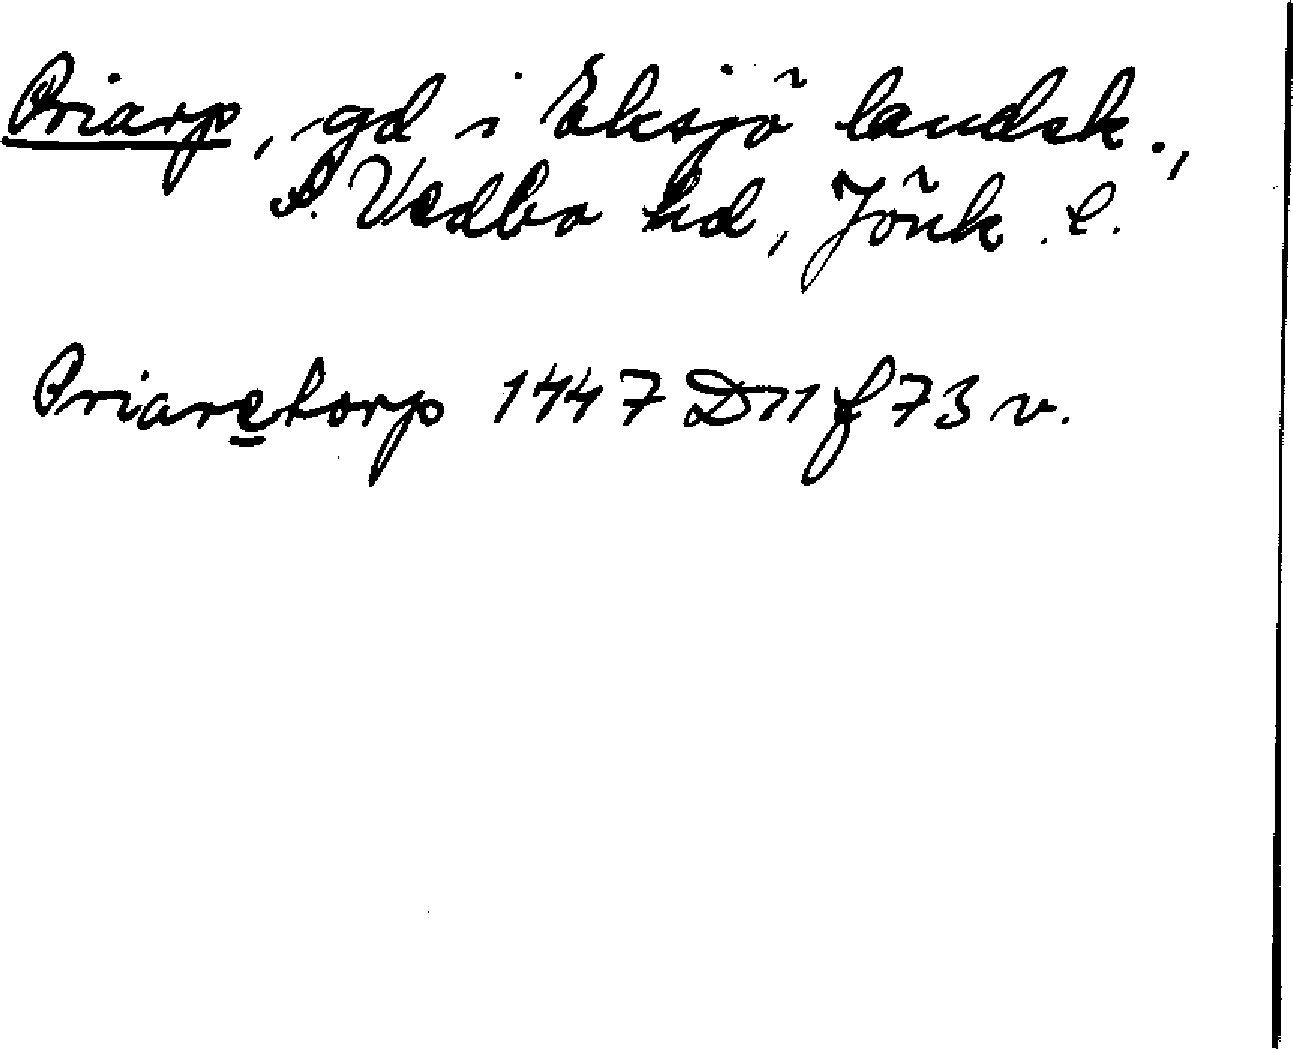 Priarp, gd i Eksjö landsk.,
S. Vedbo hd, Jönk. l.
Priaretorp 1447 D11 f 73 v.